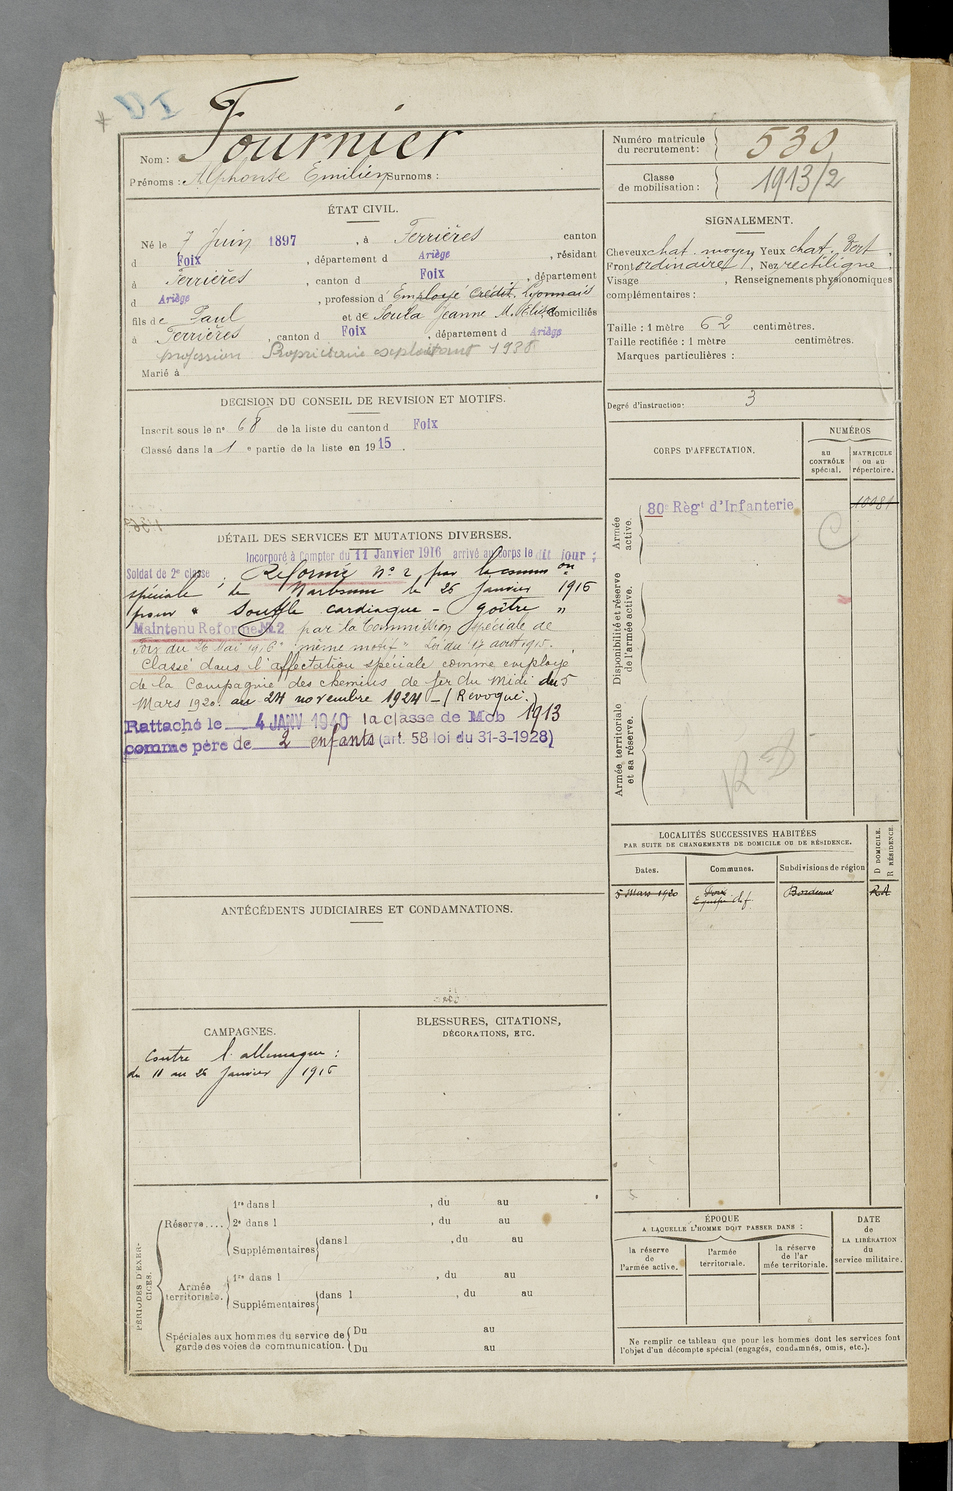 Nom : Fournier
Prénoms : Alphonse Emilien Surnoms :
ÉTAT CIVIL.
Né le 7 Juin 1897, à Ferrières canton
d Foix, département d Ariège, résidant
à Ferrières, canton d Foix, département
d Ariège, profession d'Employé Crédit Lyonnais
fils de Paul et de Soula Jeanne M. domiciliés
à Ferrières, canton d Foix, département d Ariège
profession Propriétaire exploitant 1938
Marié à
DÉCISION DU CONSEIL DE REVISION ET MOTIFS.
Inscrit sous le nº 68 de la liste du canton d Foix
Classé dans la 1 e partie de la liste en 1915.
DÉTAIL DES SERVICES ET MUTATIONS DIVERSES.
Incorporé à Compter du 11 Janvier 1916 arrivé au Corps le dit jour ;
Soldat de 2e classe ; Réformé Nº 2 par la comm on
spéciale de Narbonne le 26 Janvier 1916
pour " Souffle cardiaque - goître "
Maintenu Réformé No2 par la Commission spéciale de
Foix du 26 Mai 1916 "même motif" Loi du 17 août 1915.
Classé dans l'affectation spéciale comme employé
de la Compagnie des chemins de fer du Midi du 5
Mars 1920 au 24 novembre 1924 - (Révoqué.)
Rattaché le 4 JANV 1940 la classe de Mob 1913
comme père de 2 enfants (art. 58 loi du 31-3-1928)
ANTÉCÉDENTS JUDICIAIRES ET CONDAMNATIONS.
CAMPAGNES.
Contre l'allemagne :
du 11 au 26 Janvier 1916
BLESSURES, CITATIONS,
DÉCORATIONS, ETC.
PÉRIODES D'EXERCICES.
Réserve....
1re dans l , du au
2e dans l , du au
Supplémentaires dans l , du au
Armée territoriale.
1re dans l , du au
Supplémentaires dans l , du au
Spéciales aux hommes du service de garde des voies de communication.
Du au
Du au
Numéro matricule du recrutement : 530
Classe de mobilisation : 1913/2
SIGNALEMENT.
Cheveux chat. moyen Yeux chat. ,
Front ordinaire , Nez rectiligne
Visage , Renseignements physionomiques
complémentaires :
Taille : 1 mètre 62 centimètres.
Taille rectifiée : 1 mètre centimètres.
Marques particulières :
Degré d'instruction : 3
CORPS D'AFFECTATION.
NUMÉROS
AU CONTRÔLE spécial.
MATRICULE OU AU répertoire.
Armée active.
80e Régt d'Infanterie
10081
Disponibilité et réserve de l'armée active.
Armée territoriale et sa réserve.
LOCALITÉS SUCCESSIVES HABITÉES
PAR SUITE DE CHANGEMENTS DE DOMICILE OU DE RÉSIDENCE.
Dates.
Communes.
Subdivisions de région
D DOMICILE.
R RÉSIDENCE.
5 Mars 1920
Bordeaux
ÉPOQUE
A LAQUELLE L'HOMME DOIT PASSER DANS :
la réserve de l'armée active.
l'armée territoriale.
la réserve de l'ar mée territoriale.
DATE de LA LIBÉRATION du service militaire.
Ne remplir ce tableau que pour les hommes dont les services font
l'objet d'un décompte spécial (engagés, condamnés, omis, etc.).